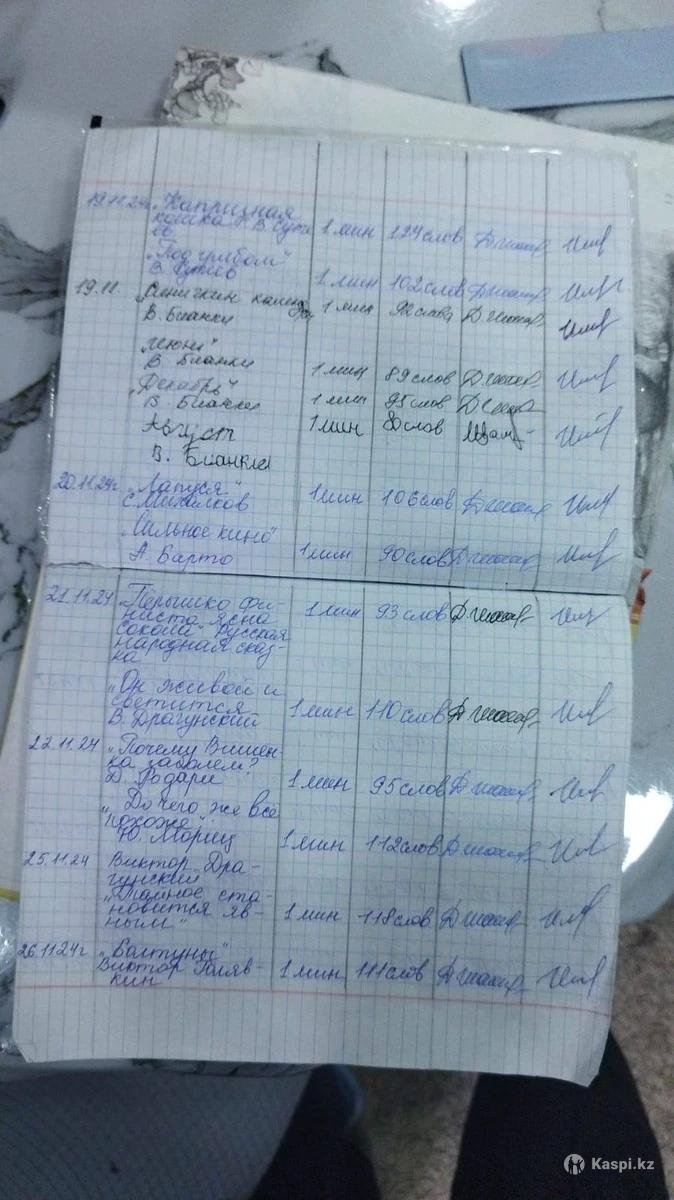 19.11.24г „Капризная
кошка" В. Суте
ев 1 мин 124 слов
„Под грибом"
В. Сутеев 1 мин 102 слов
19.11. Синичкин календарь 1 мин 92 слова
В. Бианки
„Июнь"
В. Бианки 1 мин 89 слов
„Декабрь"
В. Бианки 1 мин 95 слов
Август 1 мин 80 слов
В. Бианки
20.11.24г „Лапуся"
С. Михалков 1 мин 106 слов
„Сильное кино"
А. Барто 1 мин 90 слов
21.11.24 „Пёрышко Фи- 1 мин 93 слов
ниста ясна
сокола" Русская
народная сказ-
ка
„Он живой и
светится
В. Драгунский 1 мин 110 слов
22.11.24 „Почему Вишен-
ка заболел?
Д. Родари 1 мин 95 слов
„До чего же все
похоже".
Ю. Мориц 1 мин 112 слов
25.11.24 Виктор Дра-
гунский
„Тайное ста-
новится яв-
ным" 1 мин 118 слов
26.11.24г „Болтуны"
Виктор Голяв- 1 мин 111 слов
кин
Kaspi.kz